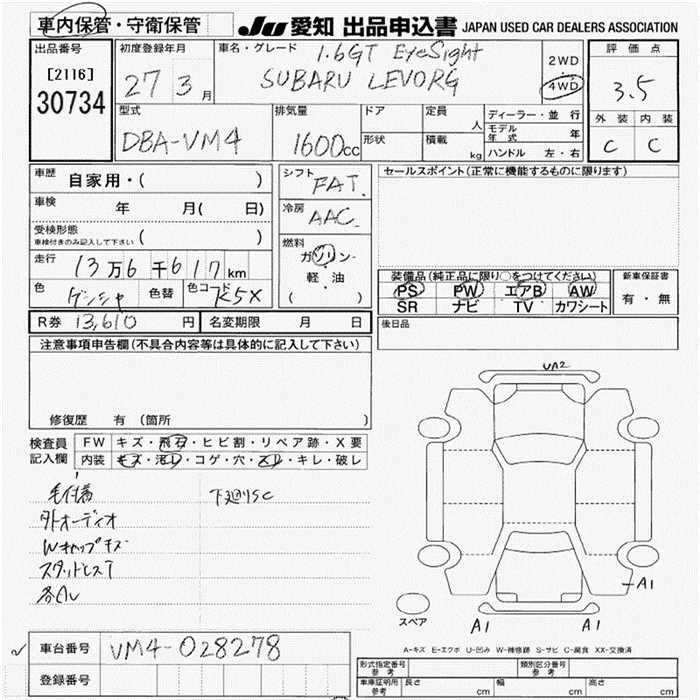 車内保管・守衛保管
JU 愛知 出品申込書 JAPAN USED CAR DEALERS ASSOCIATION
出品番号
[2116]
30734
初度登録年月
27 3月
車名・グレード
1.6GT EyeSight
SUBARU LEVORG
2WD
4WD
評価点
3.5
外装 内装
C C
型式
DBA-VM4
排気量
1600cc
ドア
形状
定員
人
積載
kg
ディーラー・並行
モデル年式 年
ハンドル 左・右
車歴
自家用・( )
車検
年 月( 日)
受検形態
車検付きのみ記入して下さい ( )
走行
13万6千617km
色
ゲンシャ
色替
色コード
K5X
シフト
FAT.
冷房
AAC.
燃料
ガソリン・
軽・油
( )
セールスポイント(正常に機能するものに限ります)
装備品(純正品に限り○をつけてください)
PS PW エアB AW
SR ナビ TV カワシート
新車保証書
有・無
R券 13,610円
名変期限 月 日
後日品
注意事項申告欄(不具合内容等は具体的に記入して下さい)
修復歴 有(箇所 )
検査員記入欄
FW キズ・飛石・ヒビ割・リペア跡・X要
内装 キズ・汚レ・コゲ・穴・スレ・キレ・破レ
下廻りSC
外オーディオ
Wキャップキズ
スタッドレスT
各AU
UA2
A1
A1
A1
スペア
A-キズ E-エクボ U-凹み W-補修跡 S-サビ C-腐食 XX-交換済
車台番号
VM4-028278
登録番号
形式指定番号 参考
類別区分番号 参考
車庫証明用 参考 長さ cm 幅 cm 高さ cm